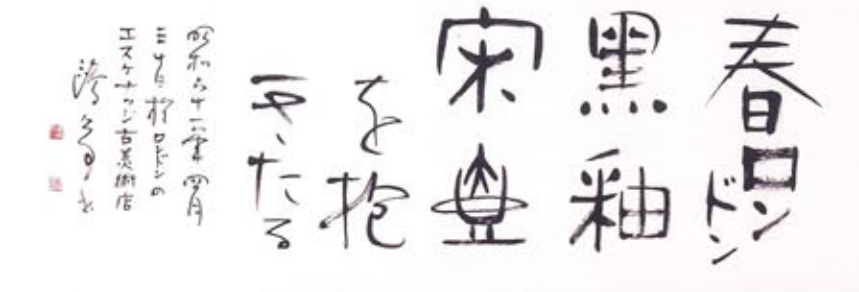 春ロンドン
黑釉
宋壺
を抱
きたる
昭和六十一年四月
三十日於ロンドンの
エスケナッジ古美術店